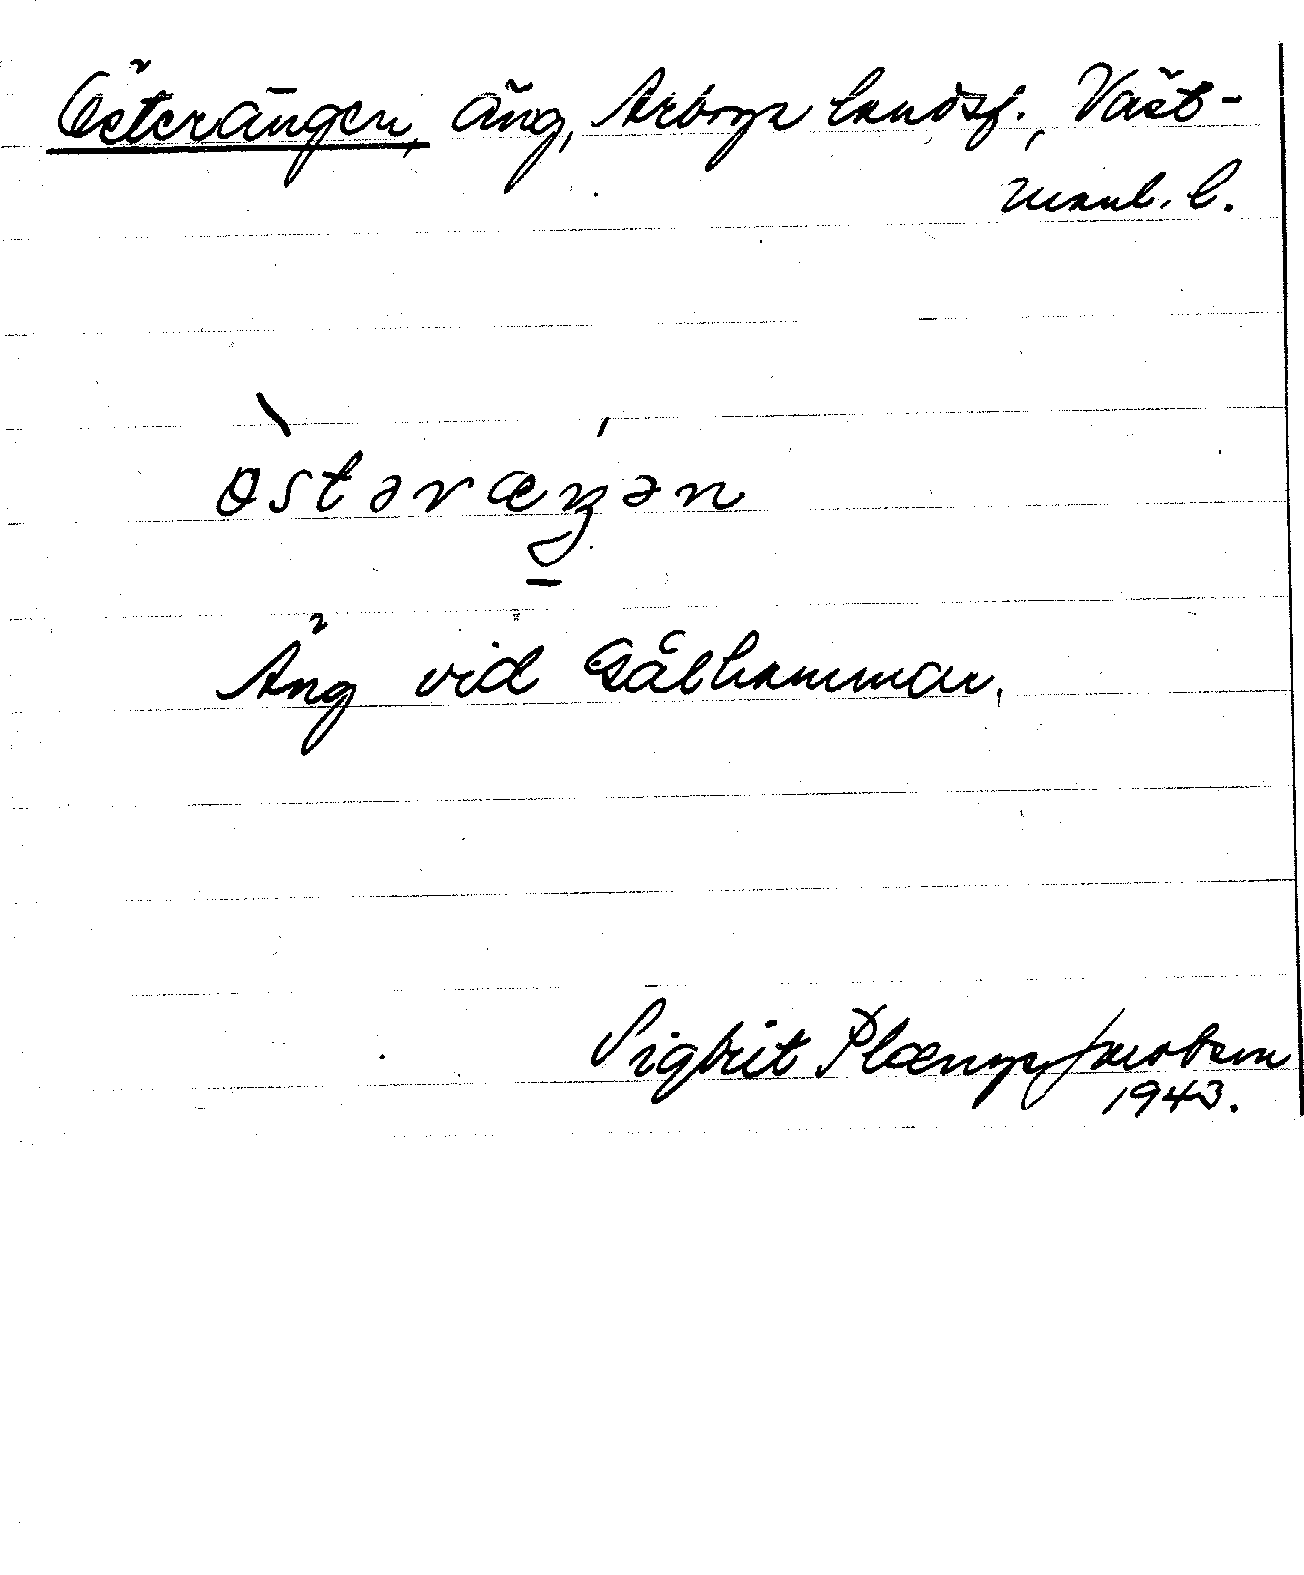 Österängen, äng, Arboga landsf., Väst-
manl. l.
ò̀stəræŋ́ən
Äng vid Gålhammar.
Sigbrit Plænge Jacobson
1943.